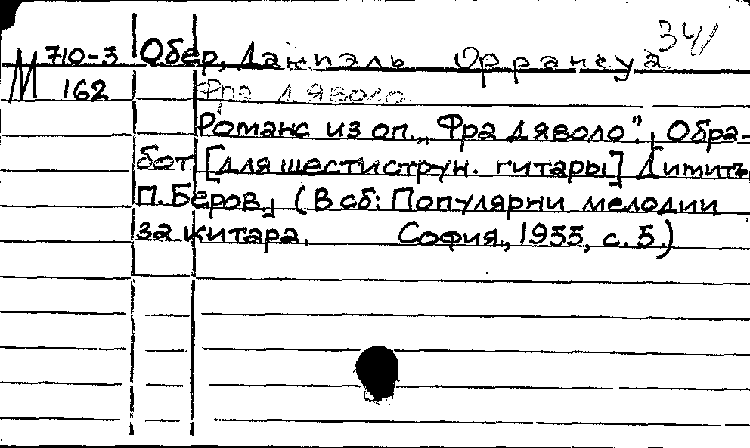 М 710-3 Обер, Даниэль Франсуа 341
162 Фра Дяволо
Романс из оп. „Фра Дяволо". Обра-
бот [для шестиструн. гитары] Димитъ
П. Беров. (В сб: Популярни мелодии
за китара. София, 1955, с. 5.)